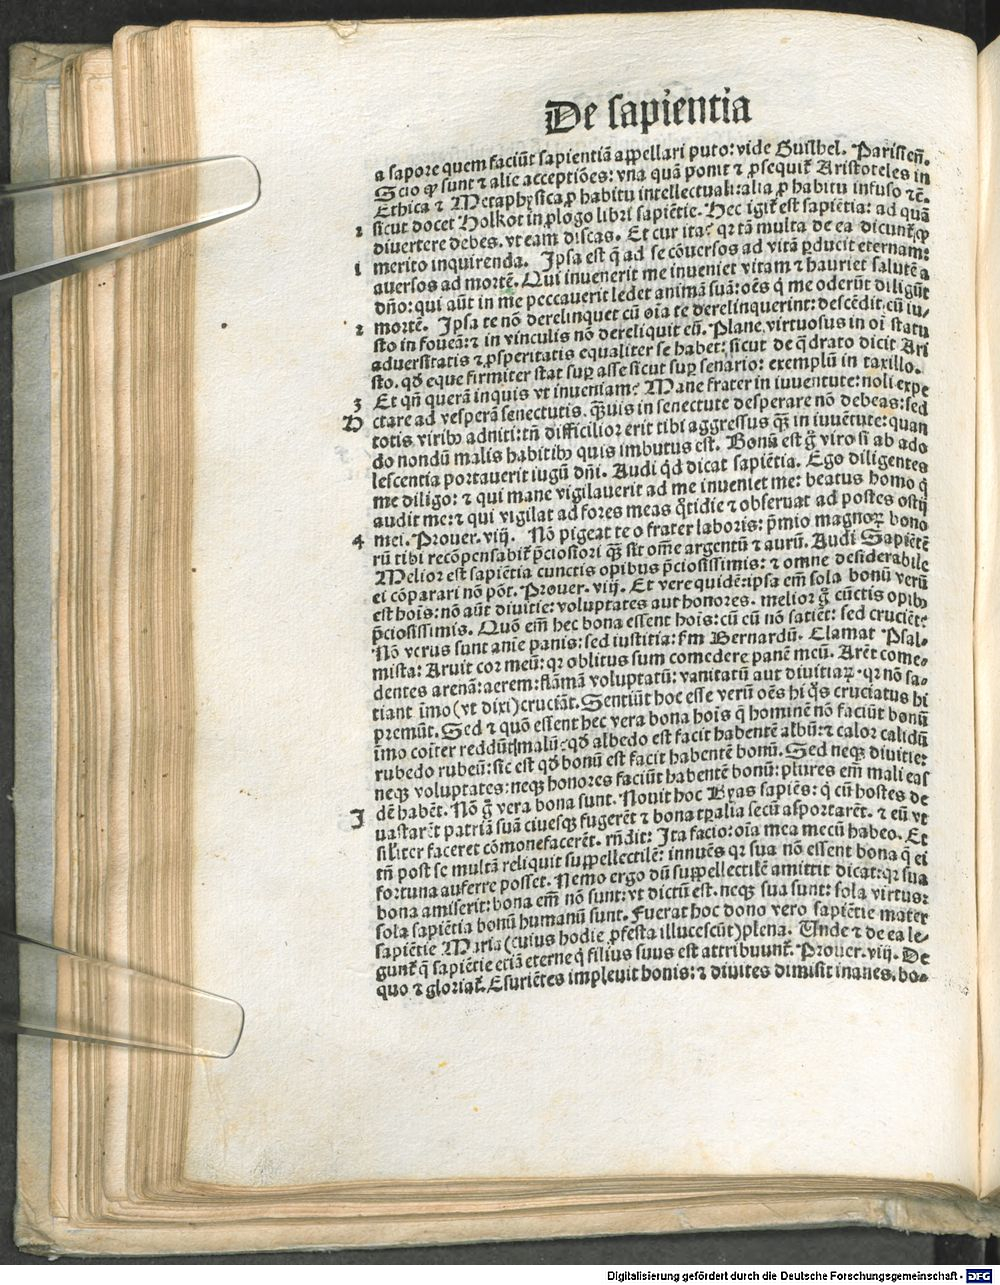 De sapientia
a sapore quem faciũt sapientiã appellari puto: vide Guilhel. Parisien̄.
Scio ꝙ sunt ⁊ alie acceptiões: vna quã ponit ⁊ ꝓsequit᷑ Aristoteles in
Ethica ⁊ Metaphysica ꝓ habitu intellectuali: alia ꝓ habitu infuso ⁊c̄.
2 sicut docet Holkot in ꝓlogo libri sapiẽtie. Hec igit᷑ est sapiẽtia: ad quã
divertere debes. vt eam discas. Et cur itaꝙ qr tã multa de ea dicunt᷑ ꝙ
1 merito inquirenda. Ipsa est q̃ ad se cõversos ad vitã ꝑducit eternam:
aversos ad mortẽ. Qui invenerit me inveniet vitam ⁊ hauriet salutẽ a
dño: qui aũt in me peccaverit ledet animã suã: oẽs q̃ me oderũt diligũt
2 mortẽ. Ipsa te nõ derelinquet cũ oĩa te derelinquerint: descẽdit cũ iu/
sto in foveã: ⁊ in vinculis nõ dereliquit eũ. Plane virtuosus in oĩ statu
adversitatis ⁊ ꝓsperitatis equaliter se habet: sicut de q̃drato dicit Ari
sto. qđ eque firmiter stat suꝑ asse sicut suꝑ senario: exemplũ in taxillo.
3 Et qñ querã inquis vt inveniam? Mane frater in iuventute: noli expe
D ctare ad vesperã senectutis. q̃uis in senectute desperare nõ debeas: sed
totis viribꝰ adniti: tñ difficilior erit tibi aggressus q̃ꝫ in iuvẽtute: quan
do nondũ malis habitibꝰ quis imbutus est. Bonũ est g̃ viro si ab ado
lescentia portauerit iugũ dñi. Audi qđ dicat sapiẽtia. Ego diligentes
me diligo: ⁊ qui mane vigilauerit ad me inveniet me: beatus homo q̃
audit me: ⁊ qui vigilat ad fores meas q̃tidie ⁊ obseruat ad postes ostij
4 mei. Prouer. viij. Nõ pigeat te o frater laboris: p̃mio magnoꝝ bono
rũ tibi recõpensabit᷑ p̃ciosiori q̃ꝫ sit om̃e argentũ ⁊ aurũ. Audi Sapiẽtẽ
Melior est sapiẽtia cunctis opibus p̃ciosissimis: ⁊ omne desiderabile
ei cõparari nõ põt. Prouer. viij. Et vere quidẽ: ipsa em̃ sola bonũ verũ
est hoĩs: nõ aũt divitie: voluptates aut honores. melior g̃ cũctis opibꝰ
p̃ciosissimis. Quõ em̃ hec bona essent hoĩs: cũ eũ nõ satiẽt: sed cruciẽt:
Nõ verus sunt anie panis: sed iustitia: s̃m Bernardũ. Clamat Psal-
mista: Aruit cor meũ: qr oblitus sum comedere panẽ meũ. Arẽt come-
dentes arenã: aerem: flãmã voluptatũ: vanitatũ aut divitiaꝝ. qr nõ sa-
tiant ĩmo (vt dixi) cruciãt. Sentiũt hoc esse verũ oẽs hi q̃s cruciatus hi
premũt. Sed ⁊ quõ essent hec vera bona hoĩs q̃ hominẽ nõ faciũt bonũ
ĩmo coĩter reddũt malũ: qđ albedo est facit habentẽ albũ: ⁊ calor calidũ
rubedo rubeũ: sic est qđ bonũ est facit habentẽ bonũ. Sed neqꝫ divitie:
neqꝫ voluptates: neqꝫ honores faciũt habentẽ bonũ: plures em̃ mali eas
dẽ habẽt. Nõ g̃ vera bona sunt. Novit hoc Byas sapiẽs: q̃ cũ hostes de
I vastarẽt patriã suã ciuesqꝫ fugerẽt ⁊ bona tꝑalia secũ asportarẽt. ⁊ eũ vt
sil̃iter faceret cõmonefacerẽt. rñdit: Ita facio: oĩa mea mecũ habeo. Et
tñ post se multã reliquit suppellectilẽ: innuẽs qr sua nõ essent bona q̃ ei
fortuna auferre posset. Nemo ergo dũ suppellectilẽ amittit dicat: qr sua
bona amiserit: bona em̃ nõ sunt: vt dictũ est. neqꝫ sua sunt: sola virtus:
sola sapiẽtia bonũ humanũ sunt. Fuerat hoc dono vero sapiẽtie mater
sapiẽtie Maria (cuius hodie ꝓfesta illucescũt) plena. Unde ⁊ de ea le-
gunt᷑ q̃ sapiẽtie etiã eterne q̃ filius suus est attribuunt᷑. Prouer. viij. De
quo ⁊ gloriat᷑. Esuriẽtes impleuit bonis: ⁊ divites dimisit inanes. bo-
Digitalisierung gefördert durch die Deutsche Forschungsgemeinschaft - DFG